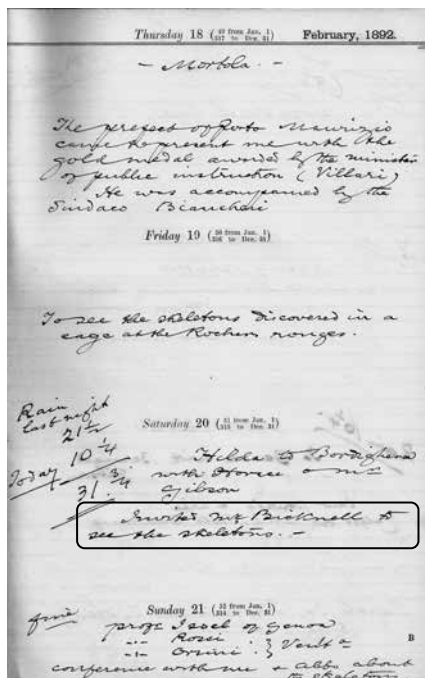 Thursday 18 (49 from Jan. 1 / 317 to Dec. 31) February, 1892.
- Mortola. -
The prefect of Porto Maurizio
came to present me with the
gold medal awarded by the minister
of public instruction (Villari)
He was accompanied by the
Sindaco Biancheri
Friday 19 (50 from Jan. 1 / 316 to Dec. 31)
To see the skeletons discovered in a
cage at the Rochers rouges.
Rain
last night
21 1/2
Today 10 1/4
31. 3/4
Saturday 20 (51 from Jan. 1 / 315 to Dec. 31)
Hilda to Bordighera
with Horace & Mr
Gibson
Invited Mr Bicknell to
see the skeletons. -
Sunday 21 (52 from Jan. 1 / 314 to Dec. 31)
fine
profs Issel of genoa
Rossi
Orsini } Ventila
B
conference with me & abbo about
the skeletons